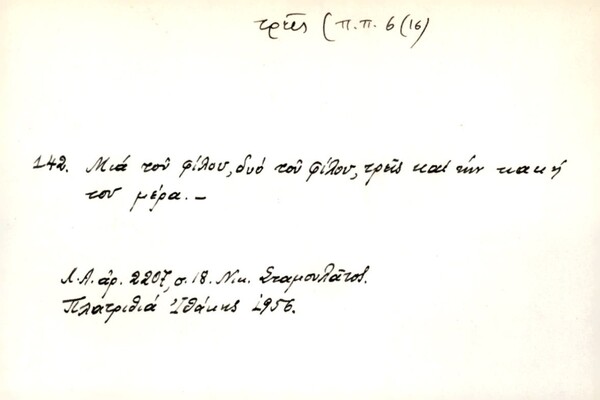 τρεῖς (π.π. 6 (16)
142. Μιά τοῦ φίλου, δυό τοῦ φίλου, τρεῖς καί τήν κακή
του μέρα. –
Λ.Α. ἀρ. 2207, σ. 18. Νικ. Σταμουλᾶτος.
Πλατριθιά Ἰθάκης 1956.